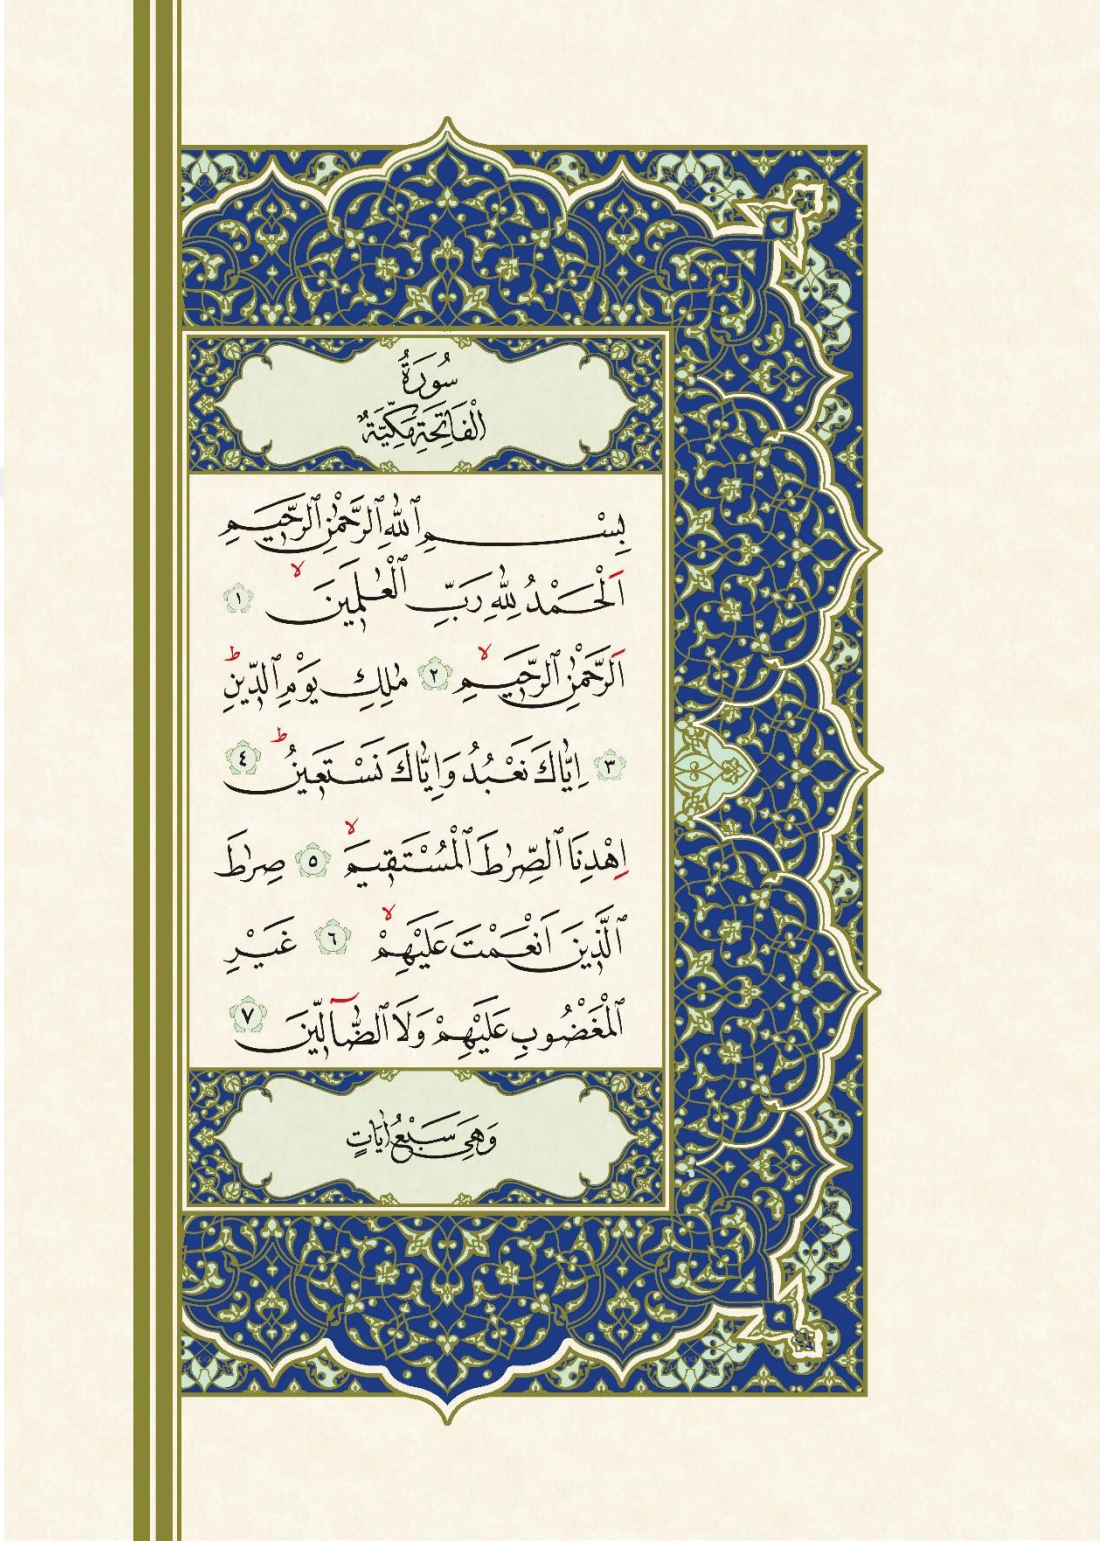 سُورَةُ
الْفَاتِحَةِ مَكِّيَّةٌ
بِسْمِ ٱللّٰهِ ٱلرَّحْمٰنِ ٱلرَّحٖيمِ
اَلْحَمْدُ لِلّٰهِ رَبِّ ٱلْعٰلَمٖينَۙ ﴿١﴾
اَلرَّحْمٰنِ ٱلرَّحٖيمِۙ ﴿٢﴾ مٰلِكِ يَوْمِ ٱلدّٖينِۜ
﴿٣﴾ اِيَّاكَ نَعْبُدُ وَاِيَّاكَ نَسْتَعٖينُۜ ﴿٤﴾
اِهْدِنَا ٱلصِّرٰطَ ٱلْمُسْتَقٖيمَۙ ﴿٥﴾ صِرٰطَ
ٱلَّذٖينَ اَنْعَمْتَ عَلَيْهِمْۙ ﴿٦﴾ غَيْرِ
ٱلْمَغْضُوبِ عَلَيْهِمْ وَلَا ٱلضَّٓالّٖينَ ﴿٧﴾
وَهِيَ سَبْعُ اٰيَاتٍ